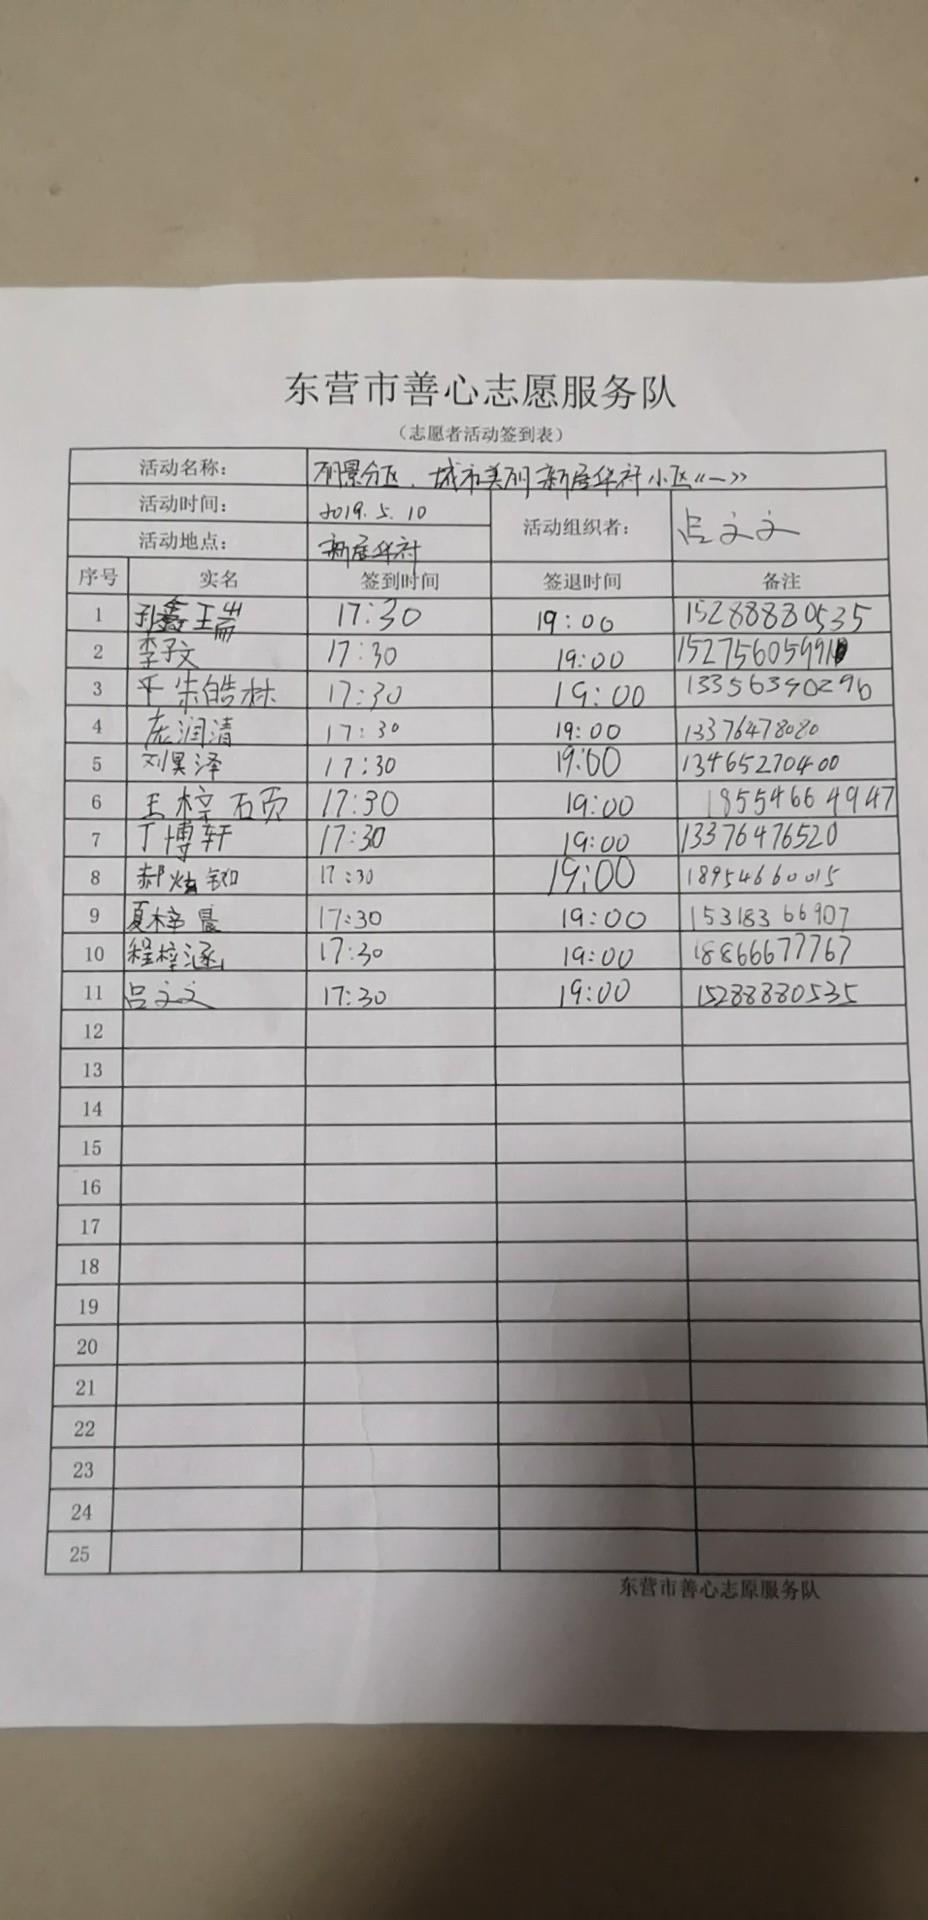 东营市善心志愿服务队
（志愿者活动签到表）
活动名称： 丽景分区、城市美丽新居华府小区《一》
活动时间： 2019.5.10 活动组织者： 吕文文
活动地点： 新居华府
序号 实名 签到时间 签退时间 备注
1 孙鑫瑞 17:30 19:00 15288880535
2 李子文 17:30 19:00 1527560599
3 朱皓林 17:30 19:00 13356390296
4 庞润清 17:30 19:00 13376478080
5 刘昊泽 17:30 19:00 13465270400
6 王梓硕 17:30 19:00 18554664947
7 丁博轩 17:30 19:00 13376476520
8 郝炫钢 17:30 19:00 18954660015
9 夏梓晨 17:30 19:00 15318366907
10 程梓涵 17:30 19:00 18866677767
11 吕文文 17:30 19:00 15288880535
12
13
14
15
16
17
18
19
20
21
22
23
24
25
东营市善心志原服务队